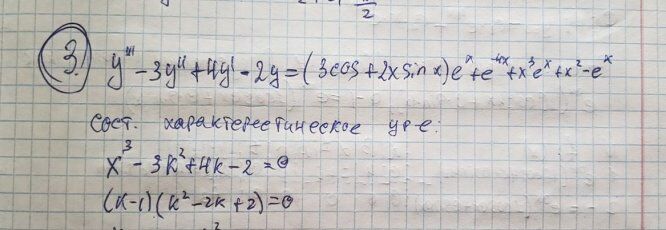 π/2
3. y''' - 3y'' + 4y' - 2y = (3cos + 2x sin x)e^x + e^-4x + x^3 e^x + x^2 - e^x
сост. характерестическое ур-е:
x^3 - 3k^2 + 4k - 2 = 0
(k-1)(k^2 - 2k + 2) = 0